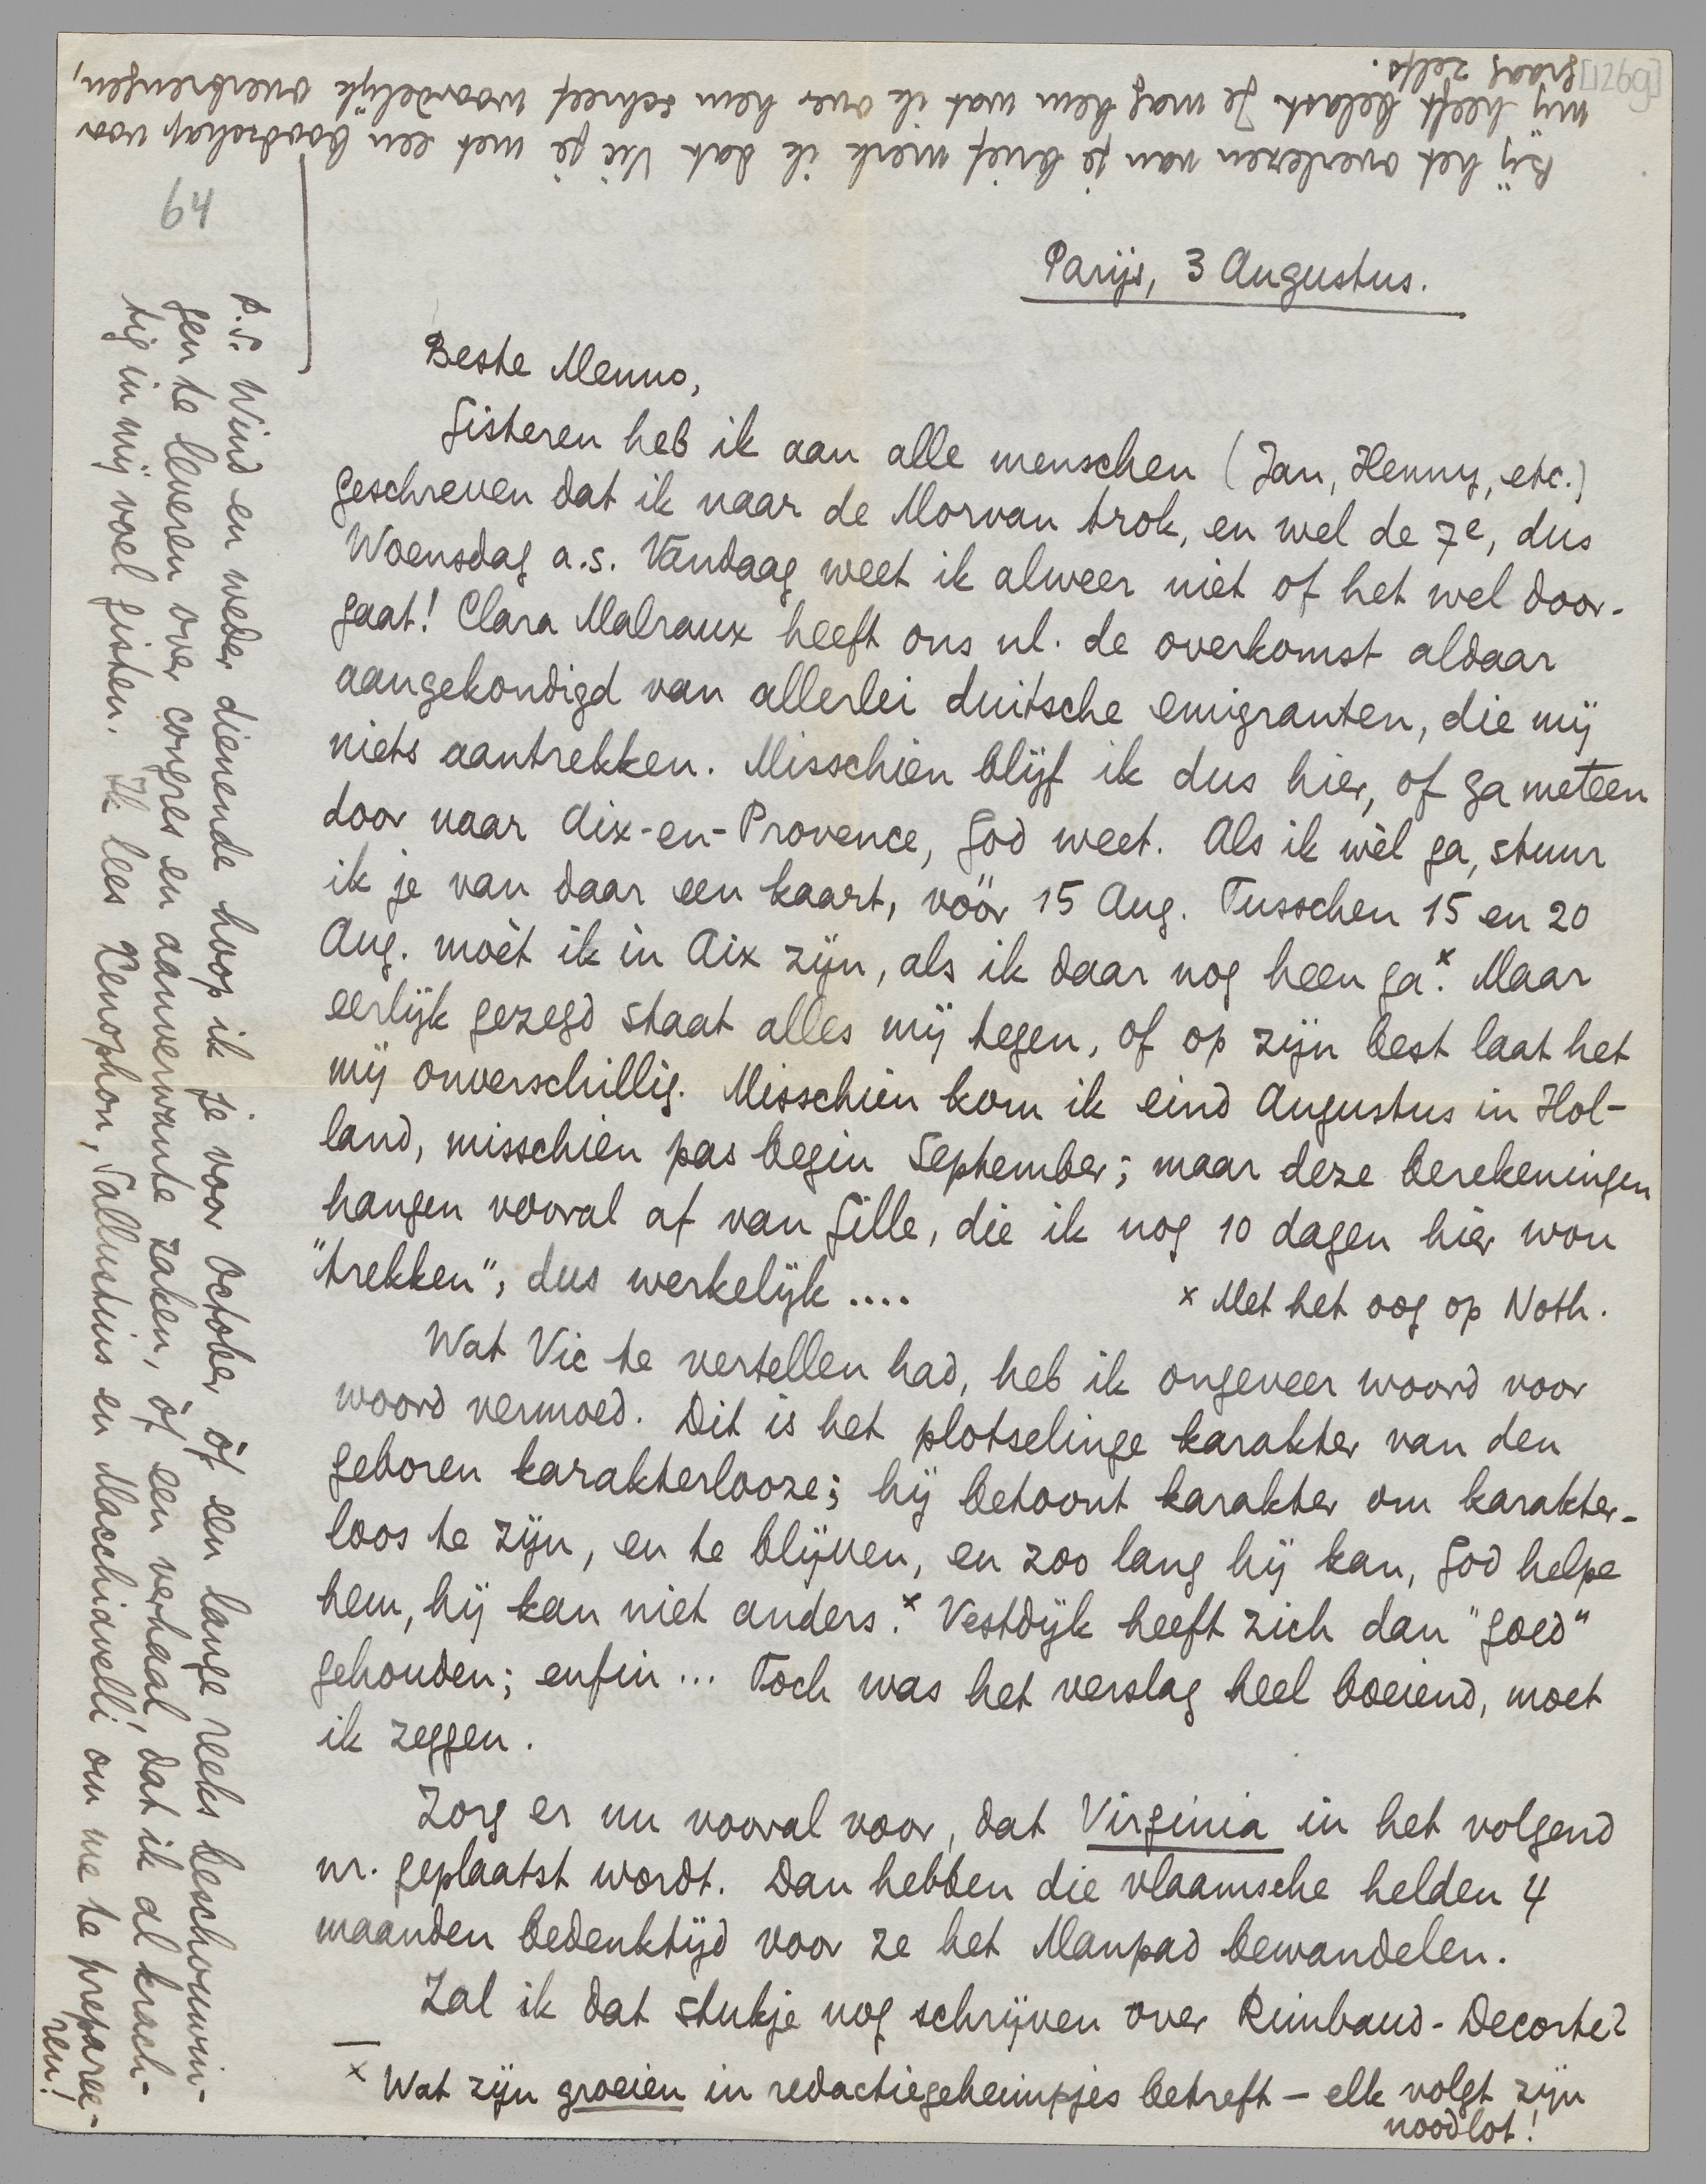 Bij het overlezen van je brief merk ik dat Vic je met een boodschap voor
mij heeft belast. Je mag hem wat ik over hem schreef woordelijk overbrengen,
graag zelfs.
[126g]
64
Parijs, 3 Augustus.
Beste Menno,
Gisteren heb ik aan alle menschen (Jan, Henny, etc.)
geschreven dat ik naar de Morvan trok, en wel de 7e, dus
Woensdag a.s. Vandaag weet ik alweer niet of het wel door-
gaat! Clara Malraux heeft ons nl. de overkomst aldaar
aangekondigd van allerlei duitsche emigranten, die mij
niets aantrekken. Misschien blijf ik dus hier, of ga meteen
door naar Aix-en-Provence, God weet. Als ik wèl ga, stuur
ik je van daar een kaart, vóór 15 Aug. Tusschen 15 en 20
Aug. moèt ik in Aix zijn, als ik daar nog heen ga.x Maar
eerlijk gezegd staat alles mij tegen, of op zijn best laat het
mij onverschillig. Misschien kom ik eind Augustus in Hol-
land, misschien pas begin September; maar deze berekeningen
hangen vooral af van Gille, die ik nog 10 dagen hier wou
"trekken", dus werkelijk ....
x Met het oog op Noth.
Wat Vic te vertellen had, heb ik ongeveer woord voor
woord vermoed. Dit is het plotselinge karakter van den
geboren karakterlooze; hij betoont karakter om karakter-
loos te zijn, en te blijven, en zoo lang hij kan, God helpe
hem, hij kan niet anders.x Vestdijk heeft zich dan "goed"
gehouden; enfin... Toch was het verslag heel boeiend, moet
ik zeggen.
Zorg er nu vooral voor, dat Virginia in het volgend
nr. geplaatst wordt. Dan hebben die vlaamsche helden 4
maanden bedenktijd voor ze het Manpad bewandelen.
Zal ik dat stukje nog schrijven over Rimbaud-Decorte?
x Wat zijn groeien in redactiegeheimpjes betreft – elk volgt zijn
noodlot!
P.S. Wind en weder dienende hoop ik je voor October òf een lange reeks beschouwin-
gen te leveren over congres en aanverwante zaken, òf een verhaal, dat ik al krach-
tig in mij voel gisten. Ik lees Xenophon, Sallustius en Macchiavelli om me te preparee-
ren!